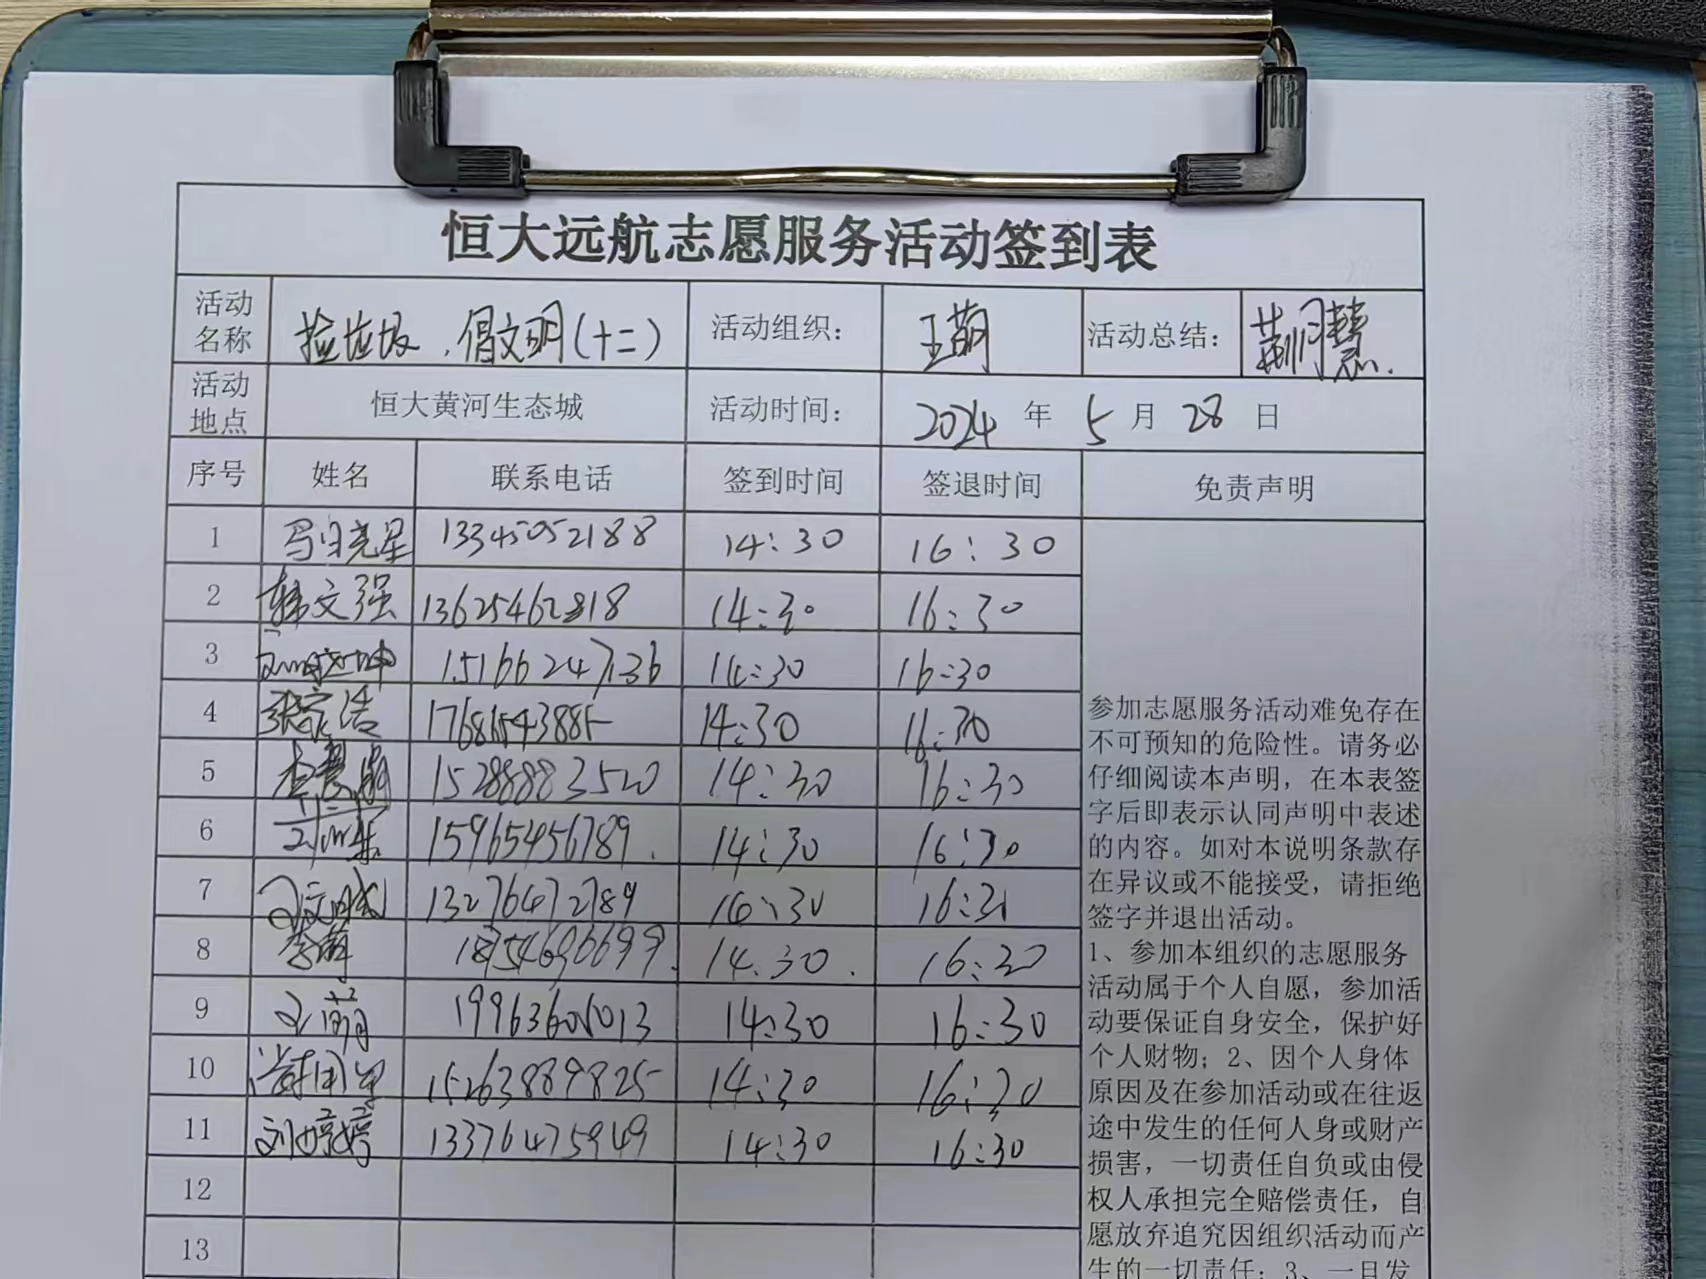 恒大远航志愿服务活动签到表
活动名称 捡垃圾、倡文明(十二) 活动组织: 王萌 活动总结: 荆月慧
活动地点 恒大黄河生态城 活动时间: 2024 年 5 月 28 日
序号 姓名 联系电话 签到时间 签退时间 免责声明
1 13345052188 14:30 16:30
2 韩文强 13625462818 14:30 16:30
3 15166247136 14:30 16:30
4 张家浩 14:30 16:30
5 15288883520 14:30 16:30
6 15965456789 14:30 16:30
7 13276472789 16:31
8 李萌 14.30 16:30
9 王萌 14:30 16:30
10 15263889825 14:30 16:30
11 刘婷婷 13376475949 14:30 16:30
12
13
参加志愿服务活动难免存在
不可预知的危险性。请务必
仔细阅读本声明，在本表签
字后即表示认同声明中表述
的内容。如对本说明条款存
在异议或不能接受，请拒绝
签字并退出活动。
1、参加本组织的志愿服务
活动属于个人自愿，参加活
动要保证自身安全，保护好
个人财物；2、因个人身体
原因及在参加活动或在往返
途中发生的任何人身或财产
损害，一切责任自负或由侵
权人承担完全赔偿责任，自
愿放弃追究因组织活动而产
生的一切责任；3、一旦发